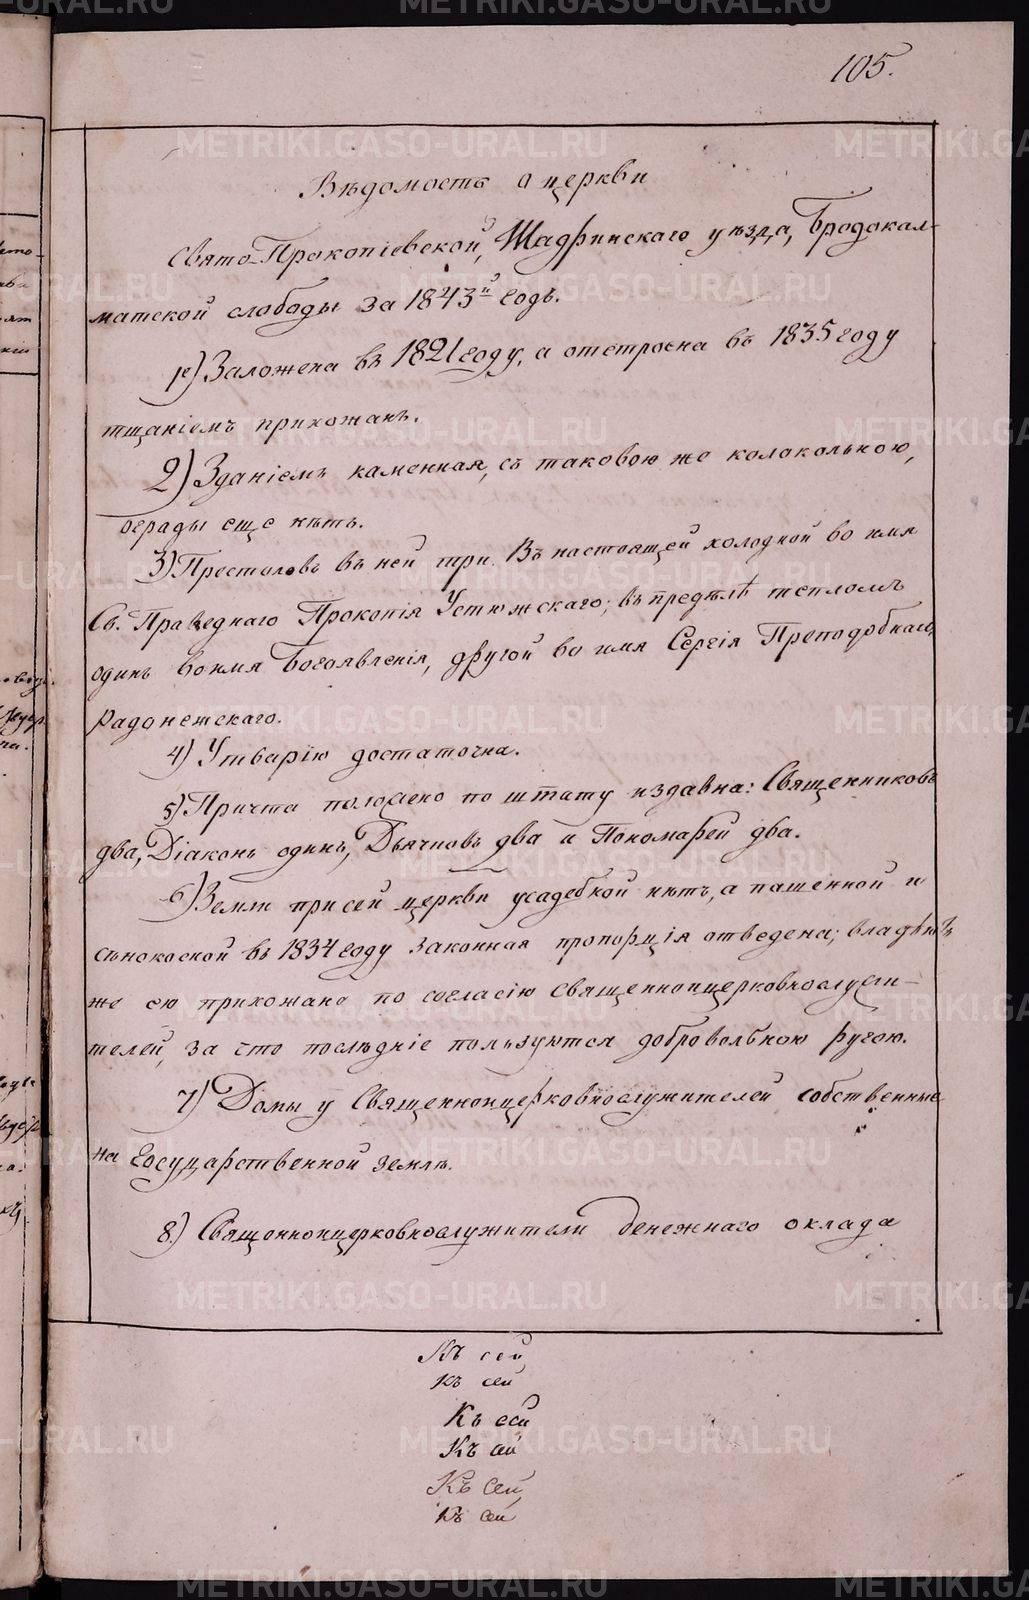 105.
Вѣдомость о церкви
Свято-Прокопіевской, Шадринскаго уѣзда, Бродокал-
матской слободы за 1843й годъ.
1е) Заложена въ 1821 году, а отстроена въ 1835 году
тщаніемъ прихожанъ.
2) Зданіемъ каменная, съ таковою же колокольною,
ограды еще нѣтъ.
3) Престоловъ въ ней три. Въ настоящей холодной во имя
Св. Праведнаго Прокопія Устюжскаго; въ предѣлѣ тепломъ
одинъ во имя Богоявленія, другой во имя Сергія Преподобнаго
Радонежскаго.
4) Утварію достаточна.
5) Причта положено по штату издавна: Священниковъ
два, Діаконъ одинъ, Дьячковъ два и Пономарей два.
6) Земли при сей церкви усадебной нѣтъ, а пашенной и
сѣнокосной въ 1834 году законная пропорція отведена; владѣютъ
же ею прихожане по согласію священноицерковнослужи-
телей, за что послѣдніе пользуются добровольною ругою.
7) Домы у Священноицерковнослужителей собственные
на государственной землѣ.
8.) Священноицерковнослужители денежнаго оклада
Къ сей
Къ сей
Къ сей
Къ сей
Къ сей
Къ сей
METRIKI.GASO-URAL.RU